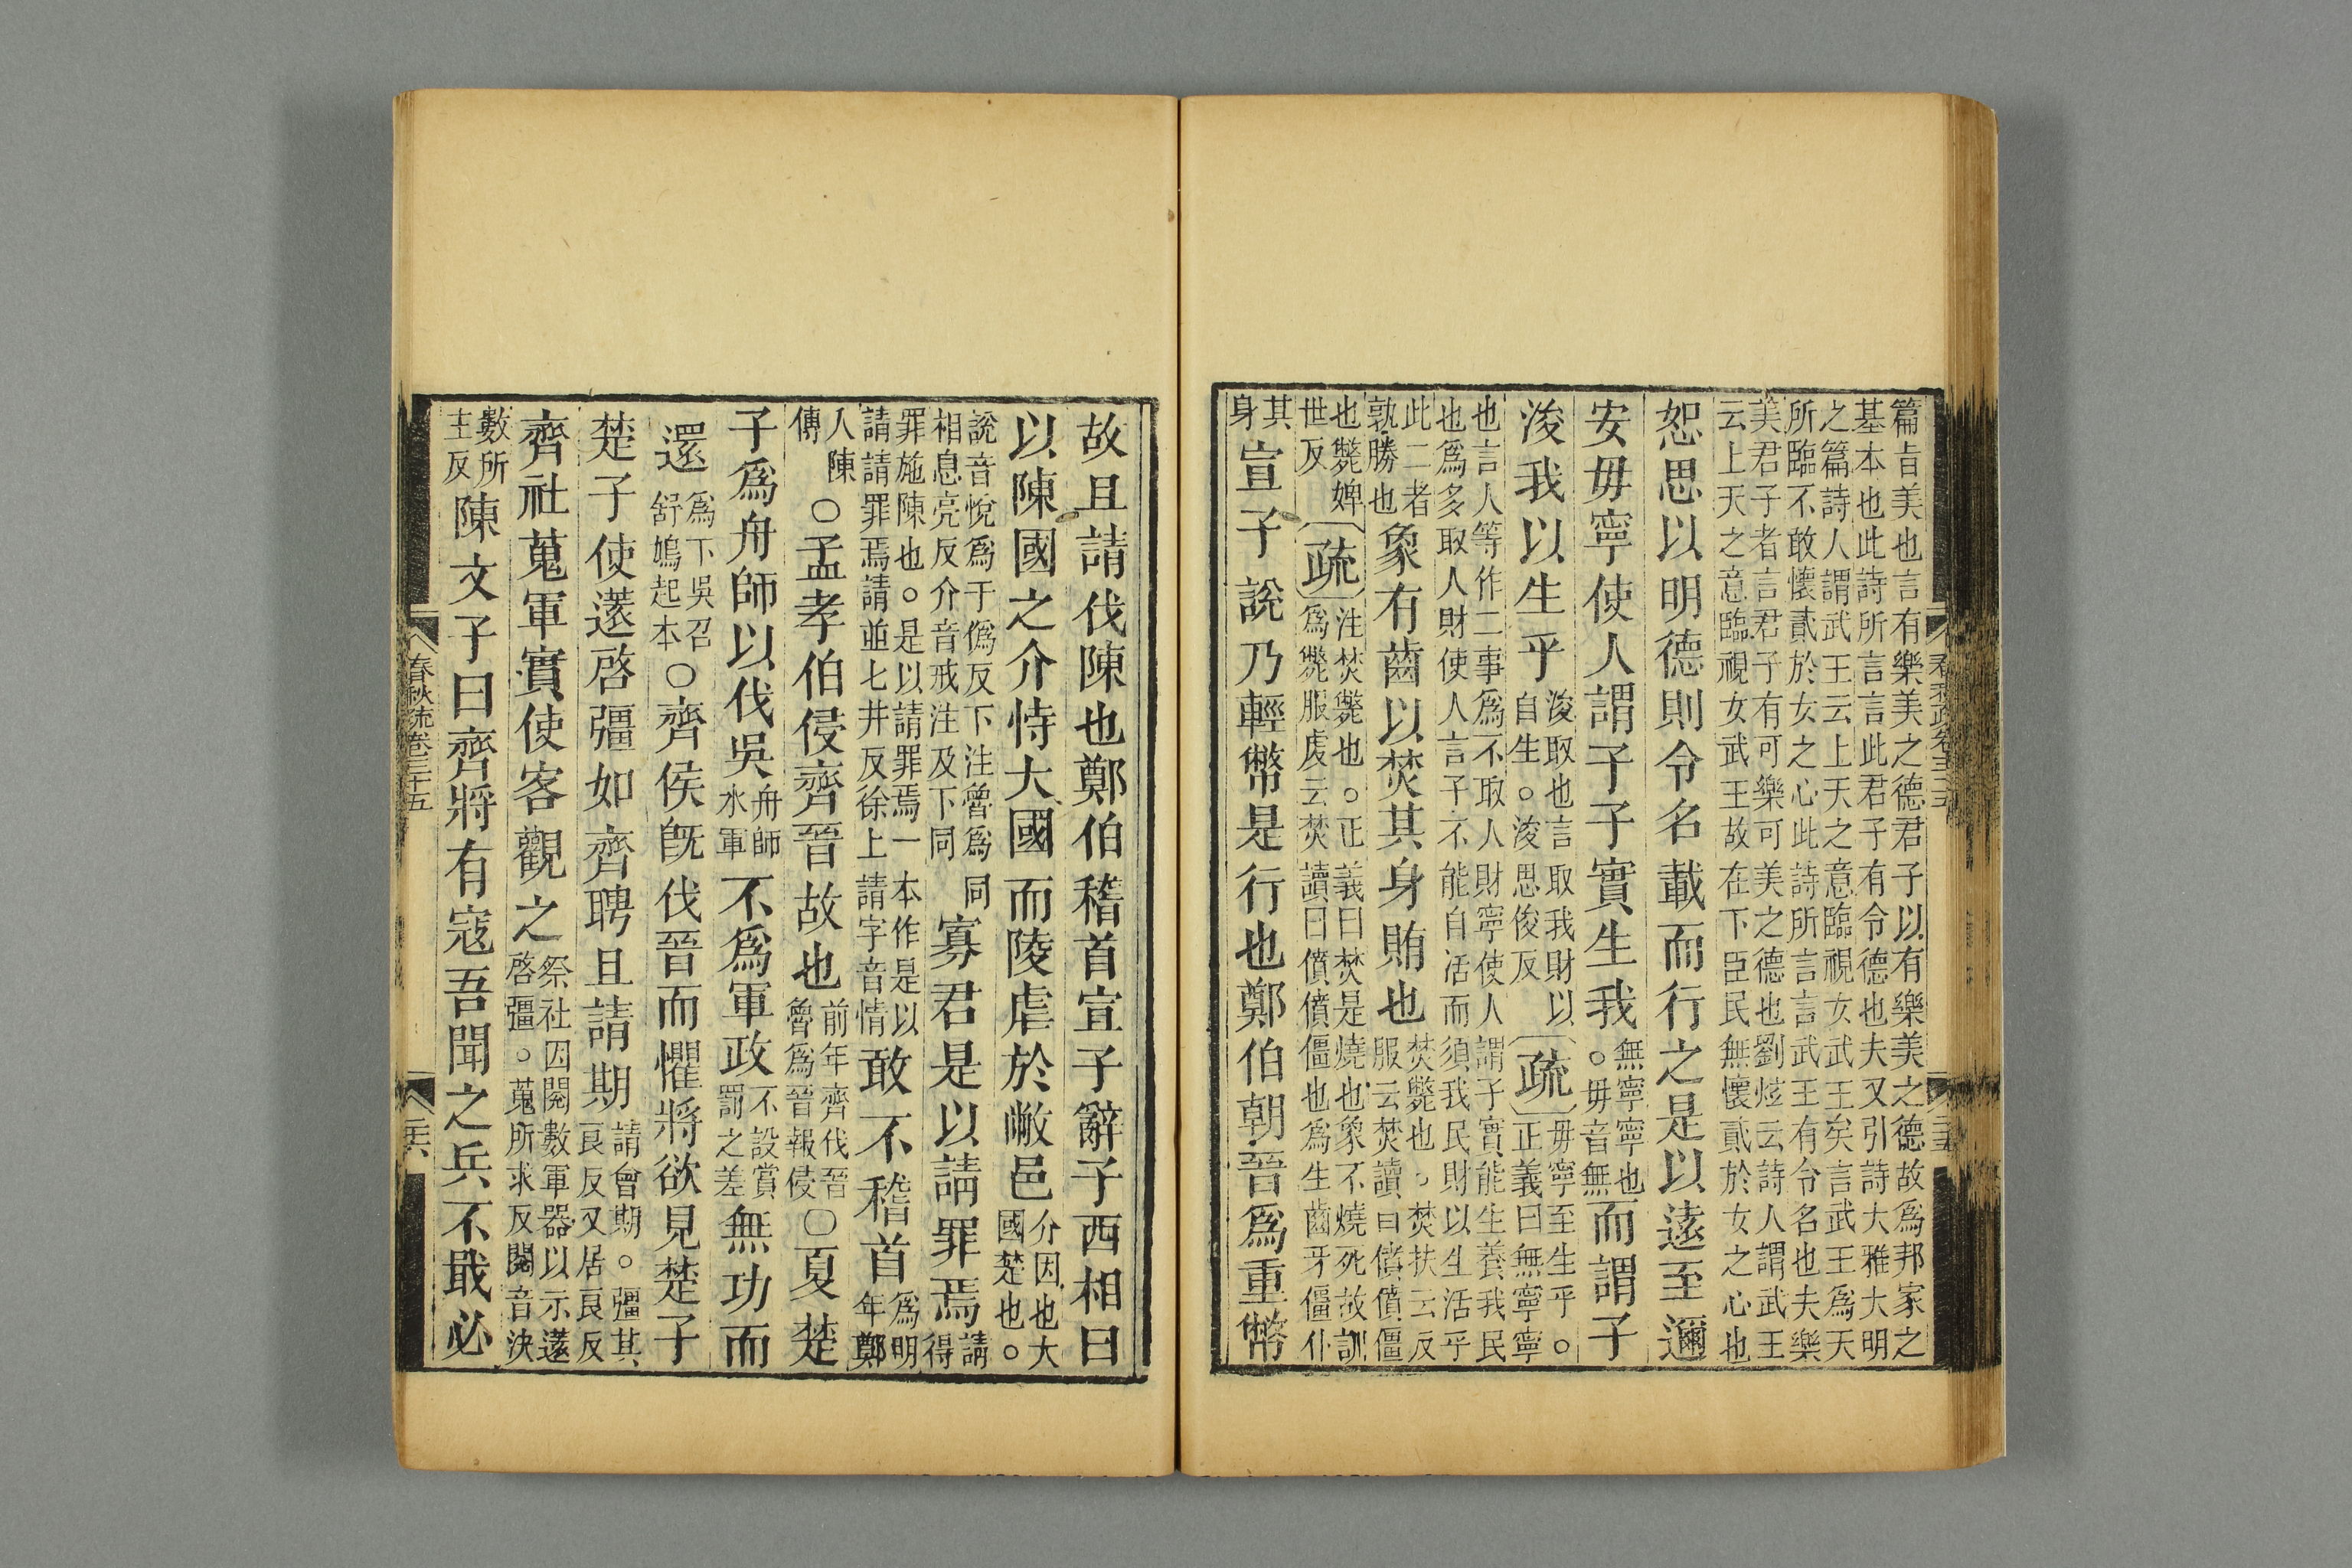 篇旨美也言有樂美之德君子以有樂美之德故爲邦家之
基本也此詩所言言此君子有令德也夫又引詩大雅大明
之篇詩人謂武王云上天之意臨視女武王矣言武王爲天
所臨不敢懷貳於女之心此詩所言言武王有令名也夫樂
美君子者言君子有可樂可美之德也劉炫云詩人謂武王
云上天之意臨視女武王故在下臣民無懷貳於女之心也
恕思以明德則令名載而行之是以遠至邇
安毋寧使人謂子子實生我
無寧寧也
。毋音無
而謂子
浚我以生乎
浚取也言取我財以
自生。浚思俊反
〔疏〕
毋寧至生乎。
正義曰無寧寧
也言人等作二事爲不取人財寧使人謂子實能生養我民
也爲多取人財使人言子不能自活而須我民財以生活乎
此二者
孰勝也
象有齒以焚其身賄也
焚斃也。焚扶云反
服云焚讀曰僨僨僵
也斃婢
世反
〔疏〕
注焚斃也。正義曰焚是燒也象不燒死故訓
爲斃服虔云焚讀曰僨僨僵也爲生齒牙僵仆
其
身
宣子說乃輕幣是行也鄭伯朝晉爲重幣
春秋疏卷三十五
故且請伐陳也鄭伯稽首宣子辭子西相曰
以陳國之介恃大國而陵虐於敝邑
介因也大
國楚也。
說音悅爲于僞反下注魯爲同
相息亮反介音戒注及下同
寡君是以請罪焉
請
得
罪施陳也。是以請罪焉一本作是以
請請罪焉請並七井反徐上請字音情
敢不稽首
爲明
年鄭
人陳
傳
○孟孝伯侵齊晉故也
前年齊伐晉
魯爲晉報侵
○夏楚
子爲舟師以伐吳
舟師
水軍
不爲軍政
不設賞
罰之差
無功而
還
爲下吳召
舒鳩起本
○齊侯既伐晉而懼將欲見楚子
楚子使薳啓彊如齊聘且請期
請會期。彊其
良反又居良反
齊社蒐軍實使客觀之
祭社因閱數軍器以示薳
啓彊。蒐所求反閱音決
數所
主反
陳文子曰齊將有寇吾聞之兵不戢必
春秋疏卷三十五